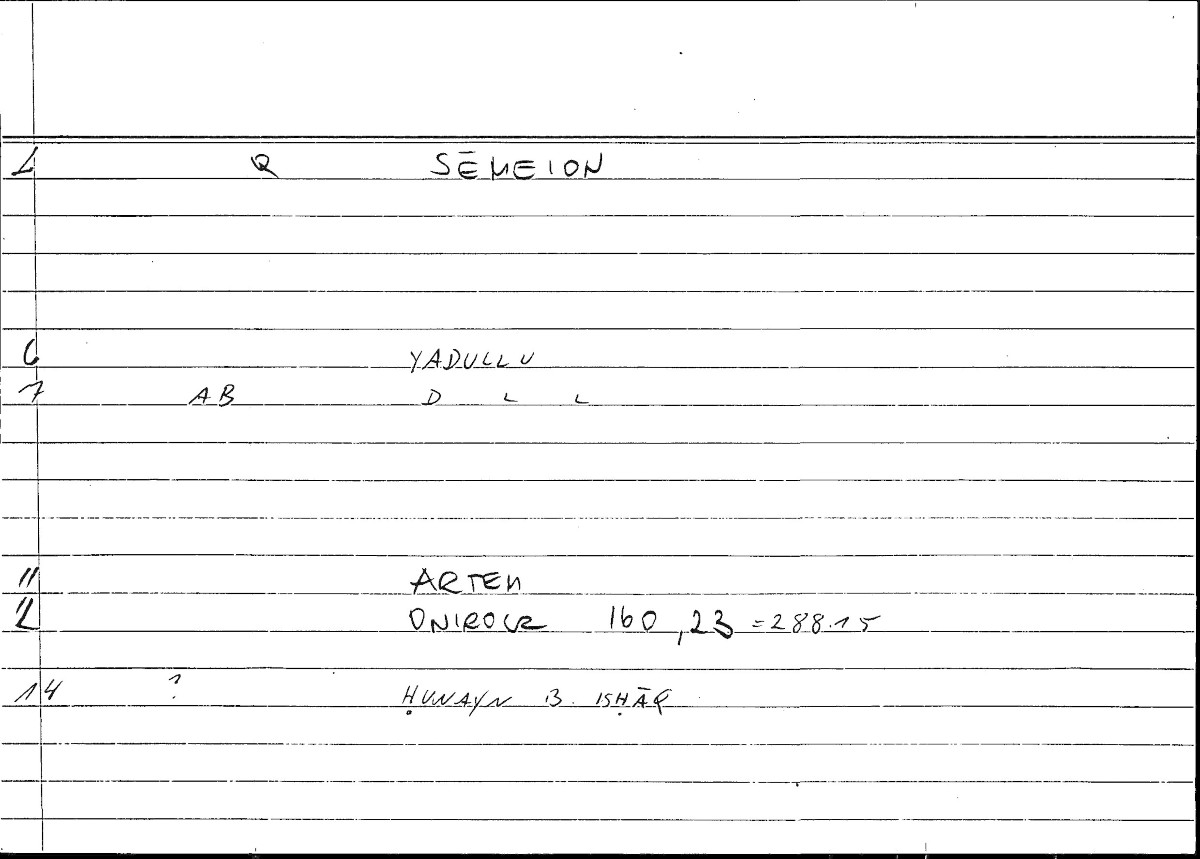 1 Q SĒMEION
6 YADULLU
7 AB D L L
11 ARTEM
12 ONIROCR 160,23 =288.15
14 ? ḤUNAYN B. ISḤĀQ